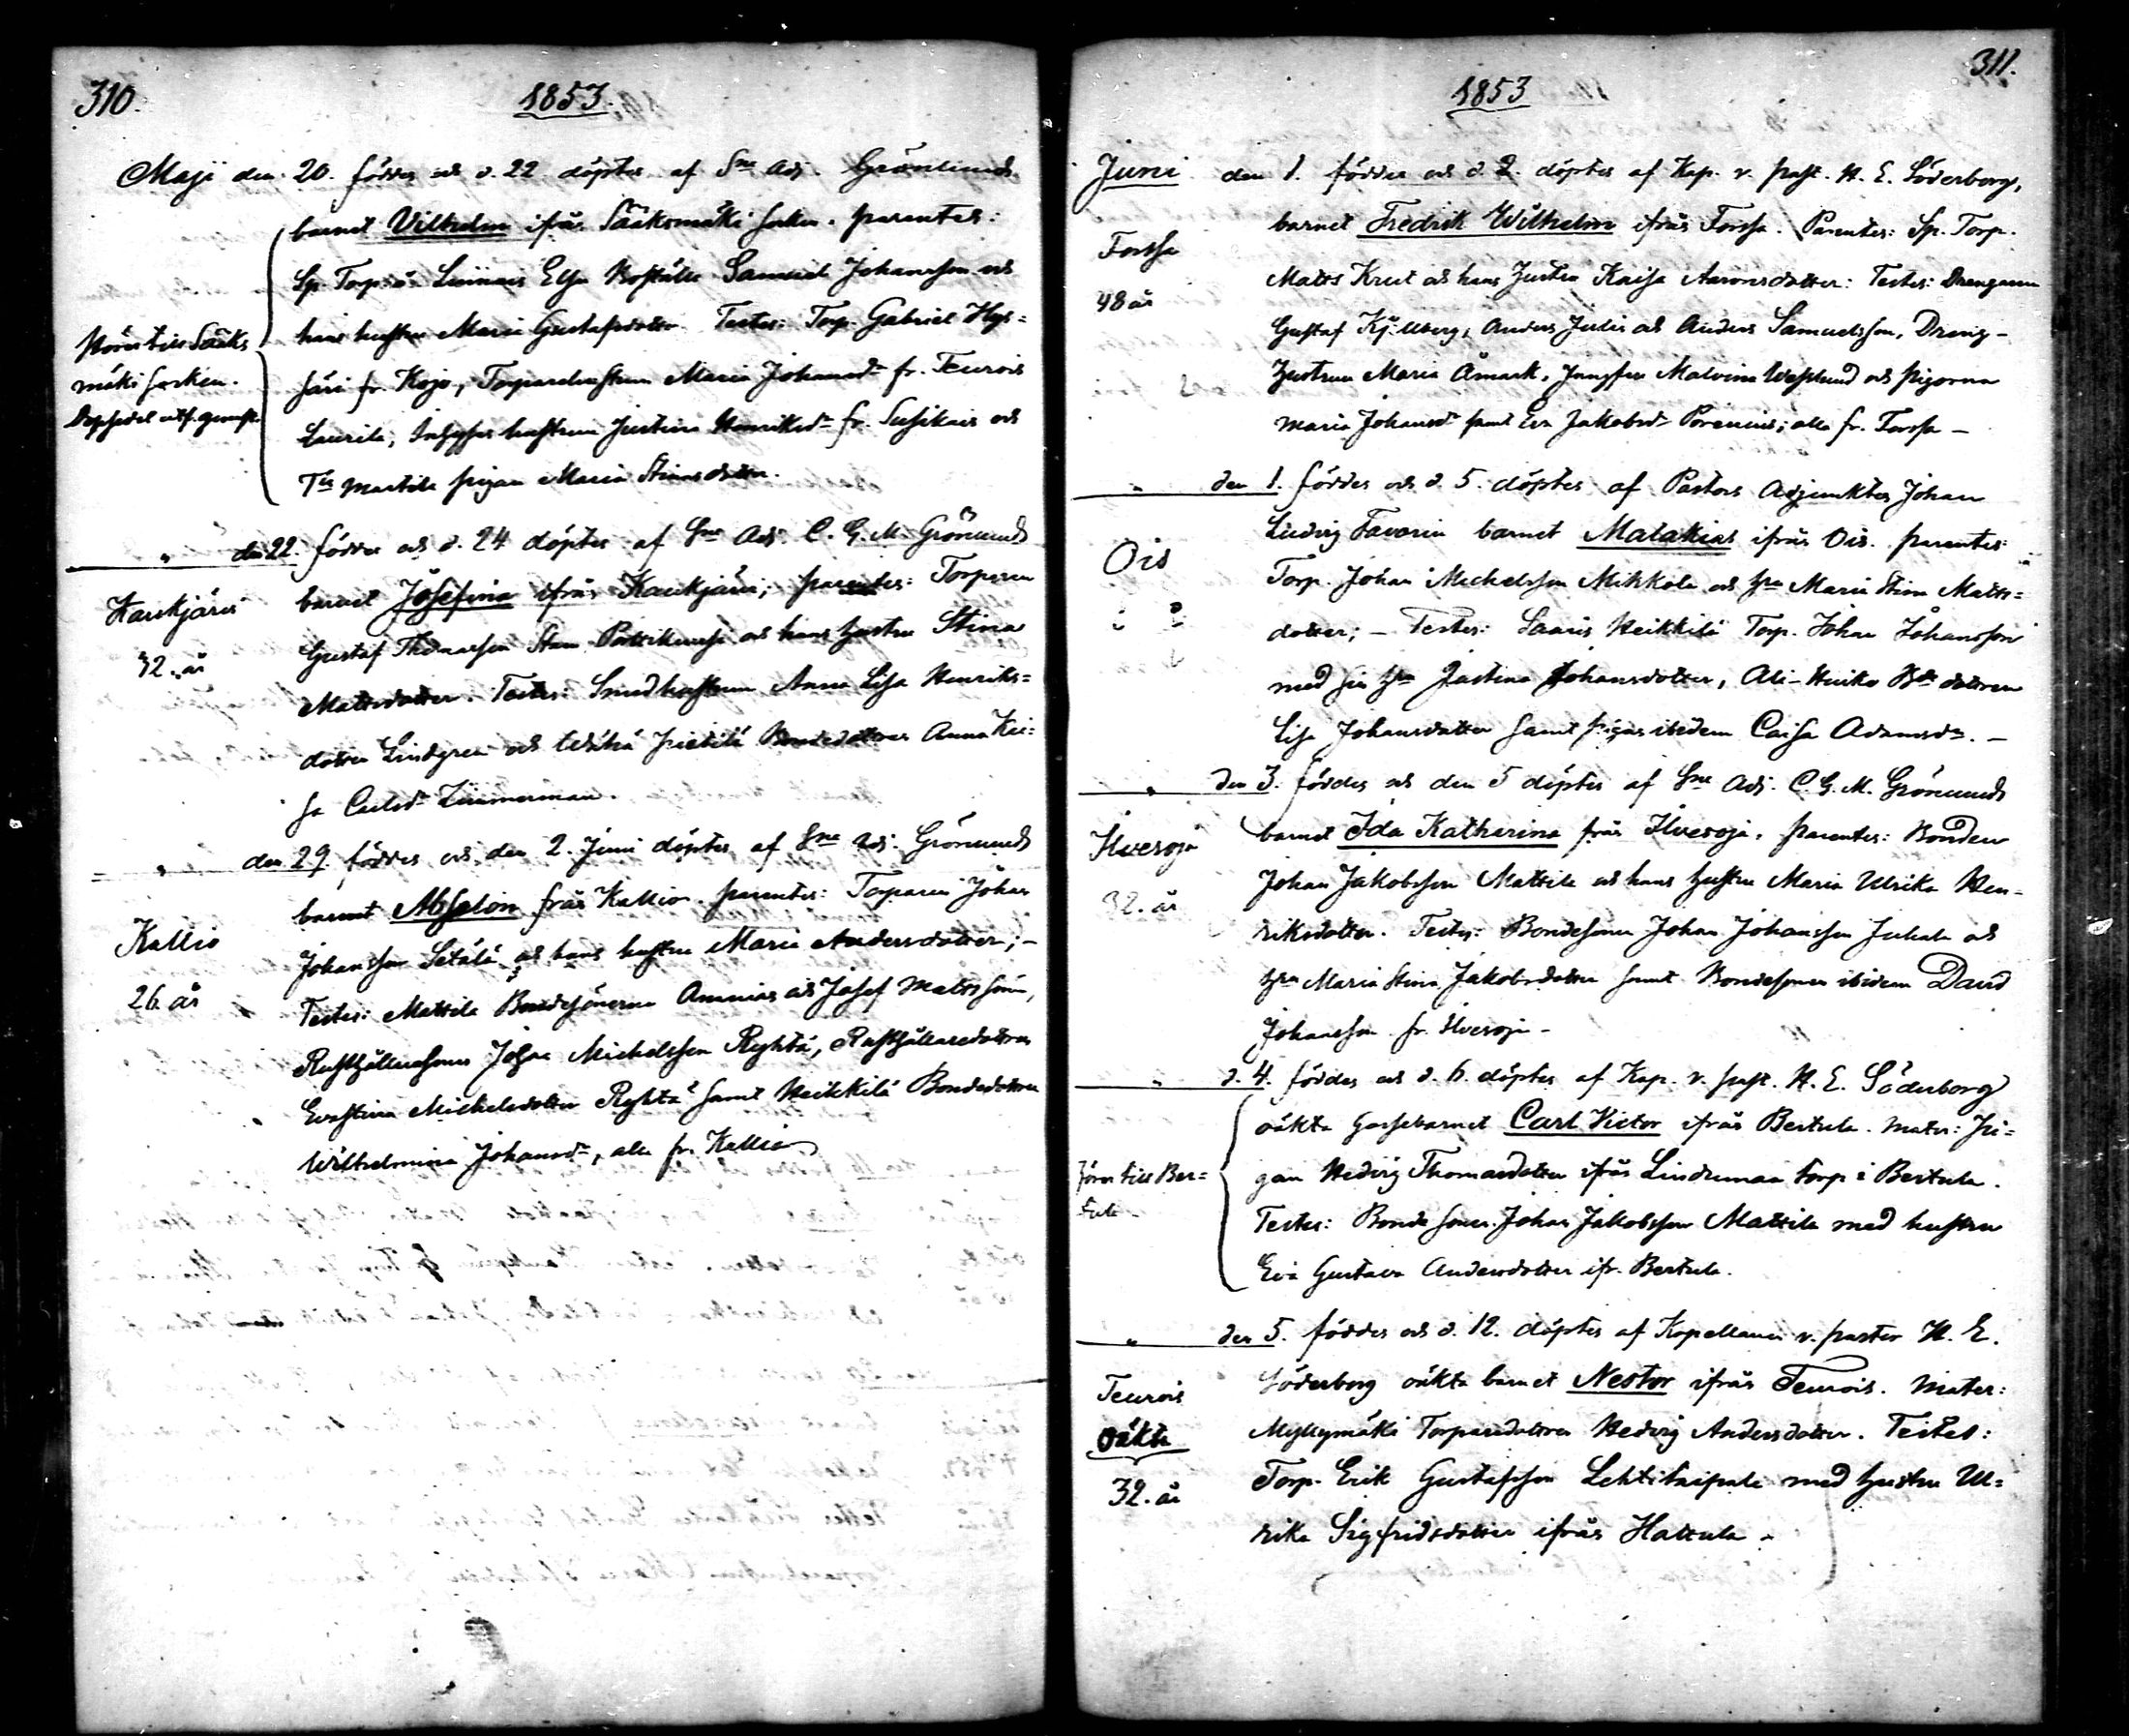 310.
1853.
Maji den 20. föddes och d. 22 döptes af Sne Adj. Grönlunds
barnet Vilhelm ifrån Sääksmäki socken. parentes:
Sp. Torp. å Boställe Samuel Johansson och
hans hustru Maria Gustafsdotter Testes: Torp. Gabriel Hys=
järi fr. Kojo, Torparehustrun Maria Johansd:r fr. Teurois
Laurila, Inhyses hustrun Justina Henriksd:r fr. Susikais och
Martila pigan Maria Stinasdotter.
Hörer till Sääks
mäki socken.
" den 22. föddes och d. 24 döptes af Sne Adj. C. G. M. Grönlunds
barnet Josefina ifrån Kaukjärvi; parentes: Torparen
Gustaf Thomasson och hans hustru Stina
Mattsdotter. Testes: Smedhustrun Anna Lisa Henriks=
dotter Lindgren och Bondedottren Anna Kai=
sa Carlsd:r Zimmerman.
Kaukjärvi
32. år
" den 29. föddes och den 2. Juni döptes af Sne Adj. Grönlunds
barnet Abselon från Kallio. parentes: Torparen Johan
Johansson Setälä och hans hustru Maria Andersdotter; -
Testes: Mattila Bondesönerna Ananias och Josef Mattssöner,
Rusthållaresonen Johan Michelsson Ryhtä, Rusthållaredottren
Evastina Michelsdotter Ryhtä samt Heikkilä Bondedottren
Wilhelmina Johansd:r, alla fr. Kallio
Kallio
26 år
311.
1853
Juni den 1. föddes och d. 2. döptes af Kap. v. past. H. E. Söderborg,
barnet Fredrik Wilhelm ifrån Forssa. Parentes: Sp. Torp.
Matts Krut och hans hustru Kaisa Aaronsdotter: Testes: Drengarne
Gustaf Kjellberg, Anders Julin och Anders Samuelsson, Dreng-
hustrun Maria Åmark, Jungfru Malvina Weslund och pigorna
Maria Johansd:r samt Eva Jakobsd:r Porenius; alla fr. Forssa -
Forssa
48 år
" den 1. föddes och d. 5. döptes af Pastors Adjunkten Johan
Ludvig Favorin barnet Malakias ifrån Ois. parentes:
Torp. Johan Michelsson Mikkola och h:u Maria Stina Matts=
dotter; - Testes: Saaris Heikkilä Torp. Johan Johansson
med sin h:u Justina Johansdotter, Ali-Heiko B:de dottren
Lisa Johansdotter samt pigan ibidem Caisa Adamsd:r. -
Ois
" den 3. föddes och den 5 döptes af Sne Adj. C. G. M. Grönlunds
barnet Ida Katharina från Ilvesoja. parentes: Bonden
Johan Jakobsson Mattila och hans hustru Maria Ulrika Hen-
riksdotter. Testes: Bondesonen Johan Johansson Juhala och
h:u Maria Stina Jakobsdotter samt Bondesonen ibidem David
Johansson fr. Ilvesoja -
Ilvesoja
32. år
" d. 4. föddes och d. 6. döptes af Kap. v. past. H. E. Söderborg
oäkta gossebarnet Carl Victor ifrån Bertula. Mater: Pi=
gan Hedvig Thomasdotter ifrån Lindeman torp i Bertula.
Testes: Bonde sonen Johan Jakobsson Mattila med hustru
Eva Gustava Andersdotter ifr. Bertula.
hörer till Ber=
tula -
" den 5. föddes och d. 12. döptes af Kapellanen v. pastor H. E.
Söderborg oäkta barnet Nestor ifrån Teurois. Mater:
Myllymäki Torparedottren Hedvig Andersdotter. Testes:
Torp. Erik Gustafsson Lehtitaipale med hustru Ul=
rika Sigfridsdotter ifrån Hattula -
Teurois
Oäkta
32. år